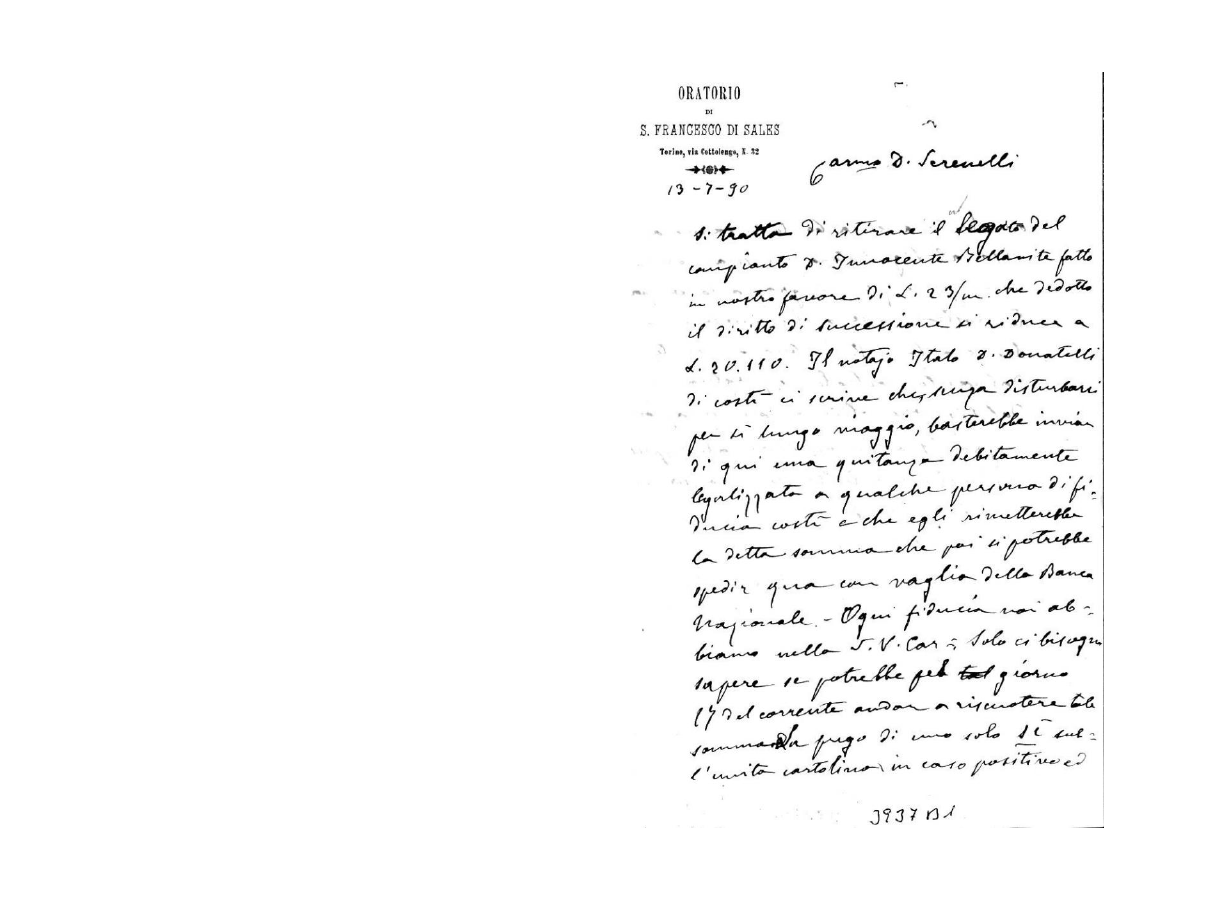 ORATORIO
DI
S. FRANCESCO DI SALES
Torino, via Cottolengo, N. 32
13-7-90
Carmo D. Serenelli
Si tratta di ritirare il legato del
compianto D. Innocente Bellavite fatto
in nostro favore di L. 23/m. che dedotto
il diritto di successione si riduce a
L. 20.110. Il notajo Italo D. Donatelli
di costì ci scrive che, senza disturbarci
per sì lungo viaggio, basterebbe inviar
di qui una quitanza debitamente
legalizzata a qualche persona di fi-
ducia costì e che egli rimetterebbe
la detta somma che poi si potrebbe
spedir qua con vaglia della Banca
Nazionale. - Ogni fiducia noi ab-
biamo nella S. V. Car. Solo ci bisogna
sapere se potrebbe pel tal giorno
17 del corrente andar a riscuotere tale
somma. La prego di uno solo sì sul-
l'unita cartolina in caso positivo ed
3937 B1